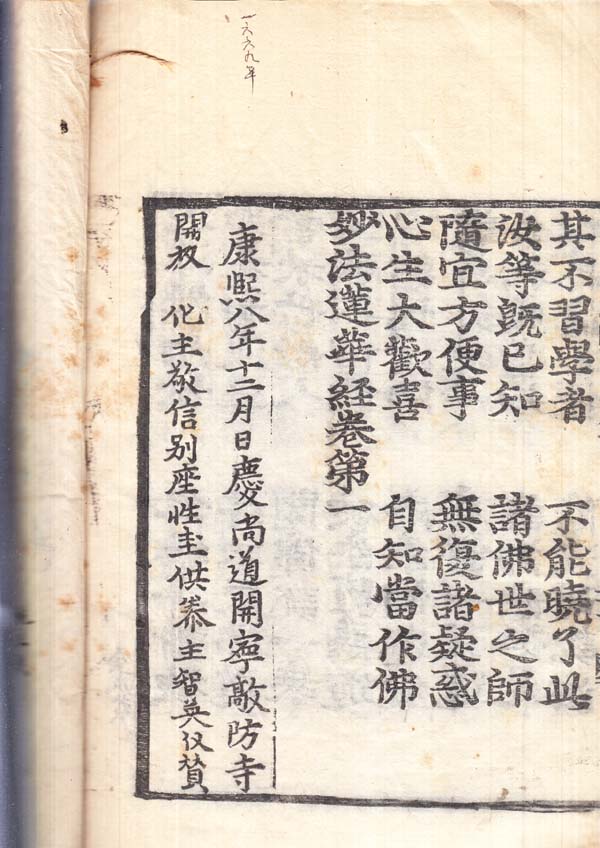 一六六九年
其不習學者　不能曉了此
汝等旣已知　諸佛世之師
隨宜方便事　無復諸疑惑
心生大歡喜　自知當作佛
妙法蓮華経卷第一
康熙八年十二月日慶尚道開寧敲防寺
開板　化主敬信別座性圭供养主智英仅賛